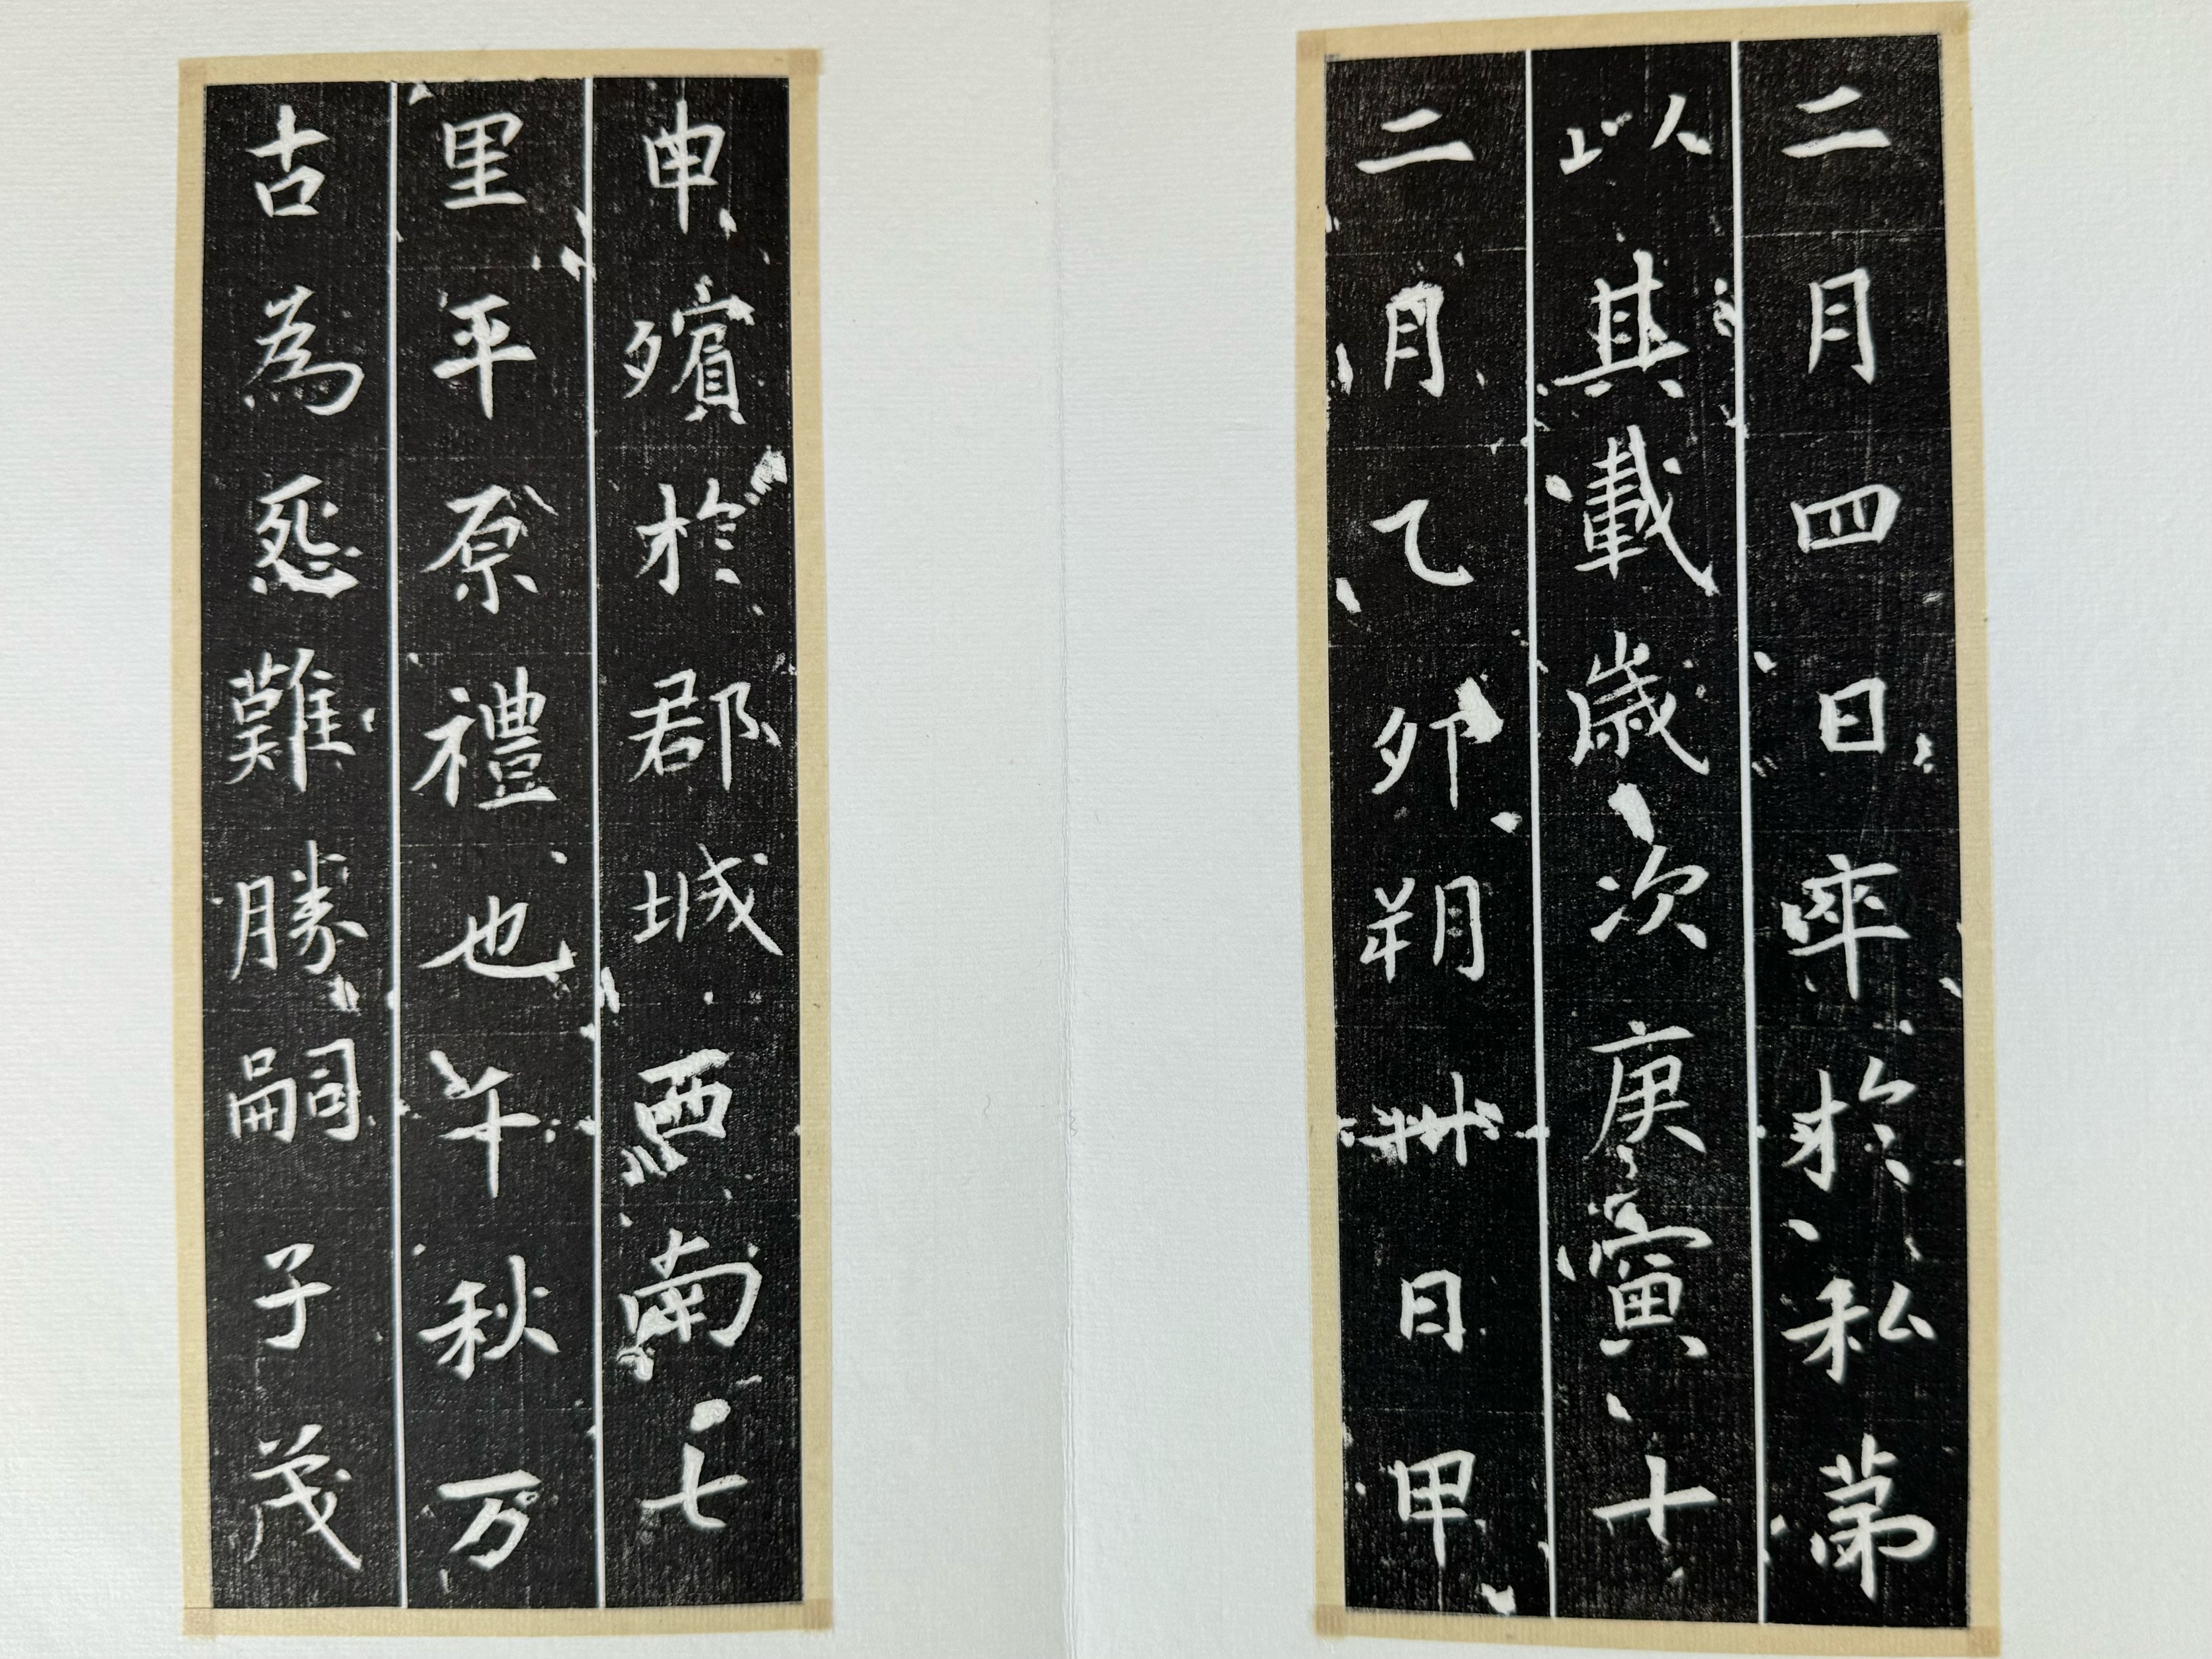 二月四日卒於私第
以其載歲次庚寅十
二月乙卯朔卅日甲
申殯於郡城西南七
里平原禮也千秋万
古為恐難勝嗣子茂